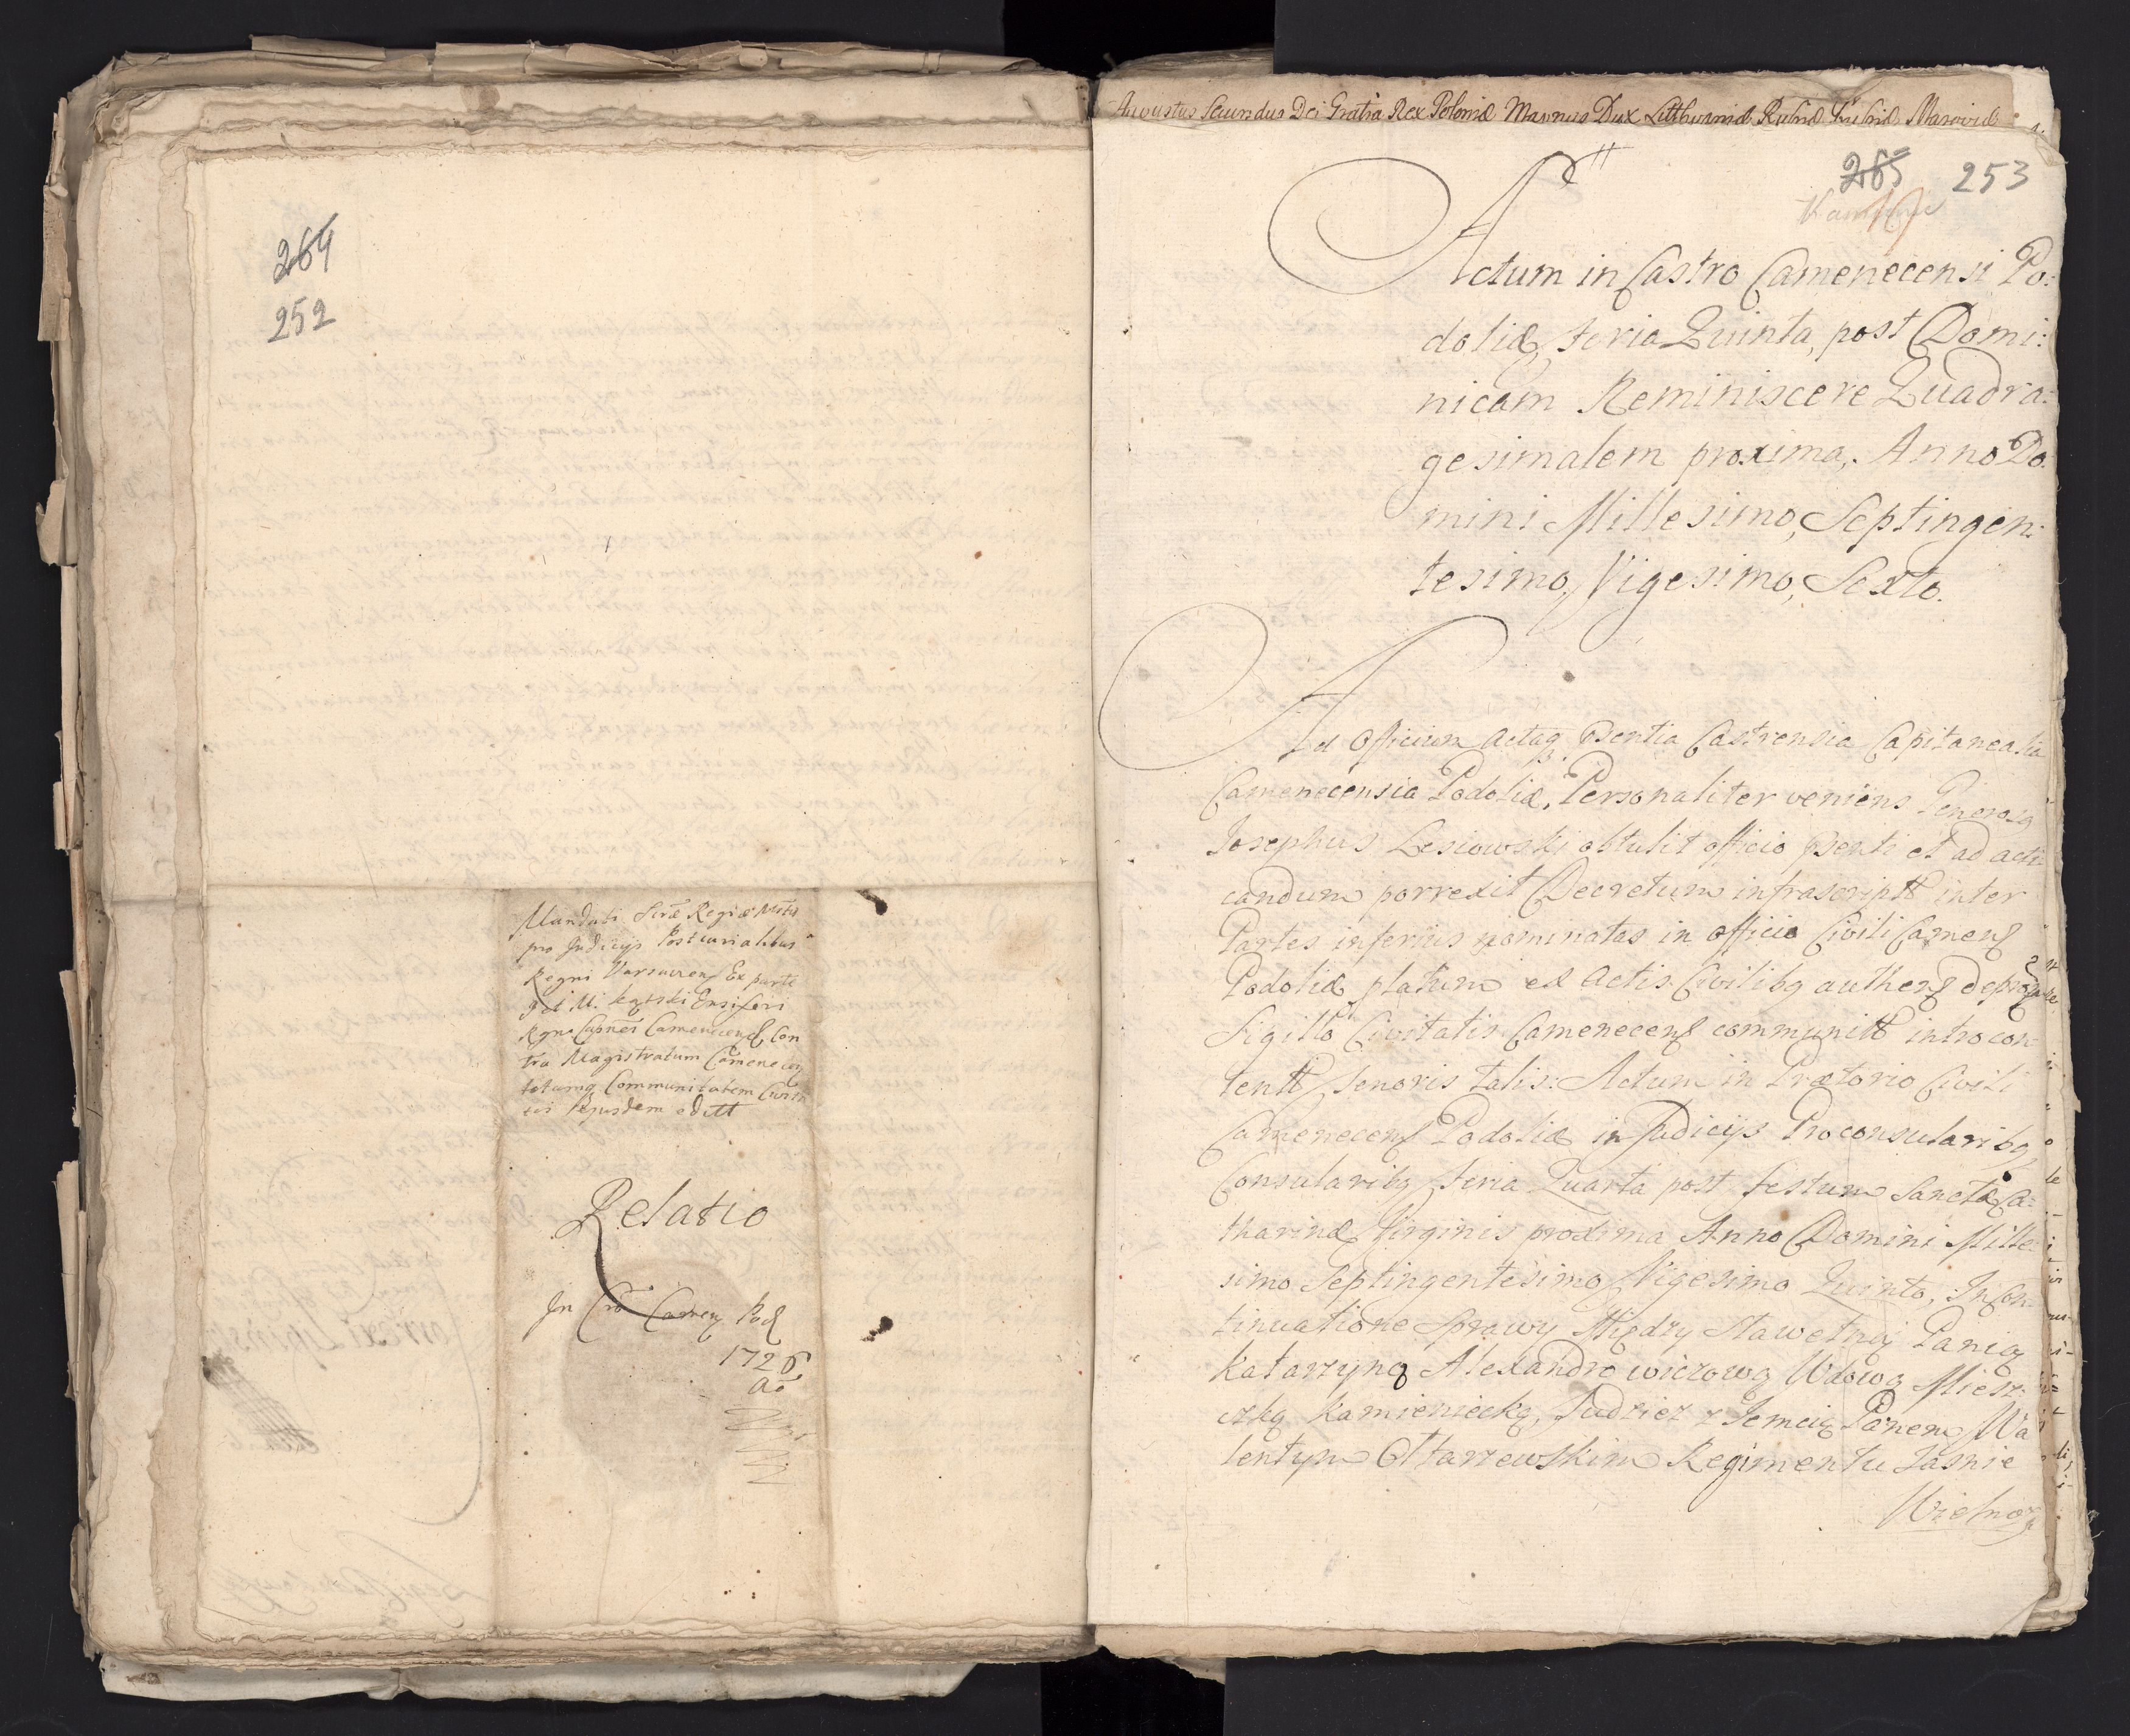 264
252
Mandati Sacræ Regiæ Mattis
pro Judicijs Postcurialibus
Regni Varsaviens Ex parte
Ensiferi
Regni Capnei Camenecens Con
tra Magistratum Camenecen
totamq Communitatem Civita
tis Ejusdem editt
Relatio
In Cro Camen Pod
1726
Ao
Augustus Secundus Dei Gratia Rex Poloniæ Magnus Dux Litthuaniæ Russiæ Prussiæ Masoviæ
265 253
Actum in Castro Camenecensi Po:
doliæ, feria Quinta, post Domi:
nicam Reminiscere Quadra:
gesimalem proxima, Anno Do
mini Millesimo, Septingen:
tesimo, Vigesimo, Sexto.
Ad Officium Actaq psentia Castrensia Capitanealia
Camenecensia Podoliæ, Personaliter veniens Generosq
Josephus Lesiowski obtulit officio psenti et ad acti:
candum porrexit Decretum infrascriptt inter
Partes inferius nominatas in officio Civili Camens
Podoliæ platum ex Actis Civilibq authens
Sigillo Civitatis Camenecens communitt introcon:
tentt, tenoris talis: Actum in Prætorio Civili
Camenecens Podoliæ in Judicijs Proconsularibq
Consularibq feria Quarta post festum Sanctæ Ca:
tharinæ Virginis proxima Anno Domini Mille:
simo Septingentesimo Vigesimo Quinto, In Con:
tinuatione Sprawy Między Sławetną Panią
Katarzyną Alexandrowiczową Wdową Miesz:
czką Kamieniecką, tudziez z Jemcią Panem Wa
lentym Ottarzewskim Regimentu Jasnie
Wielmoz